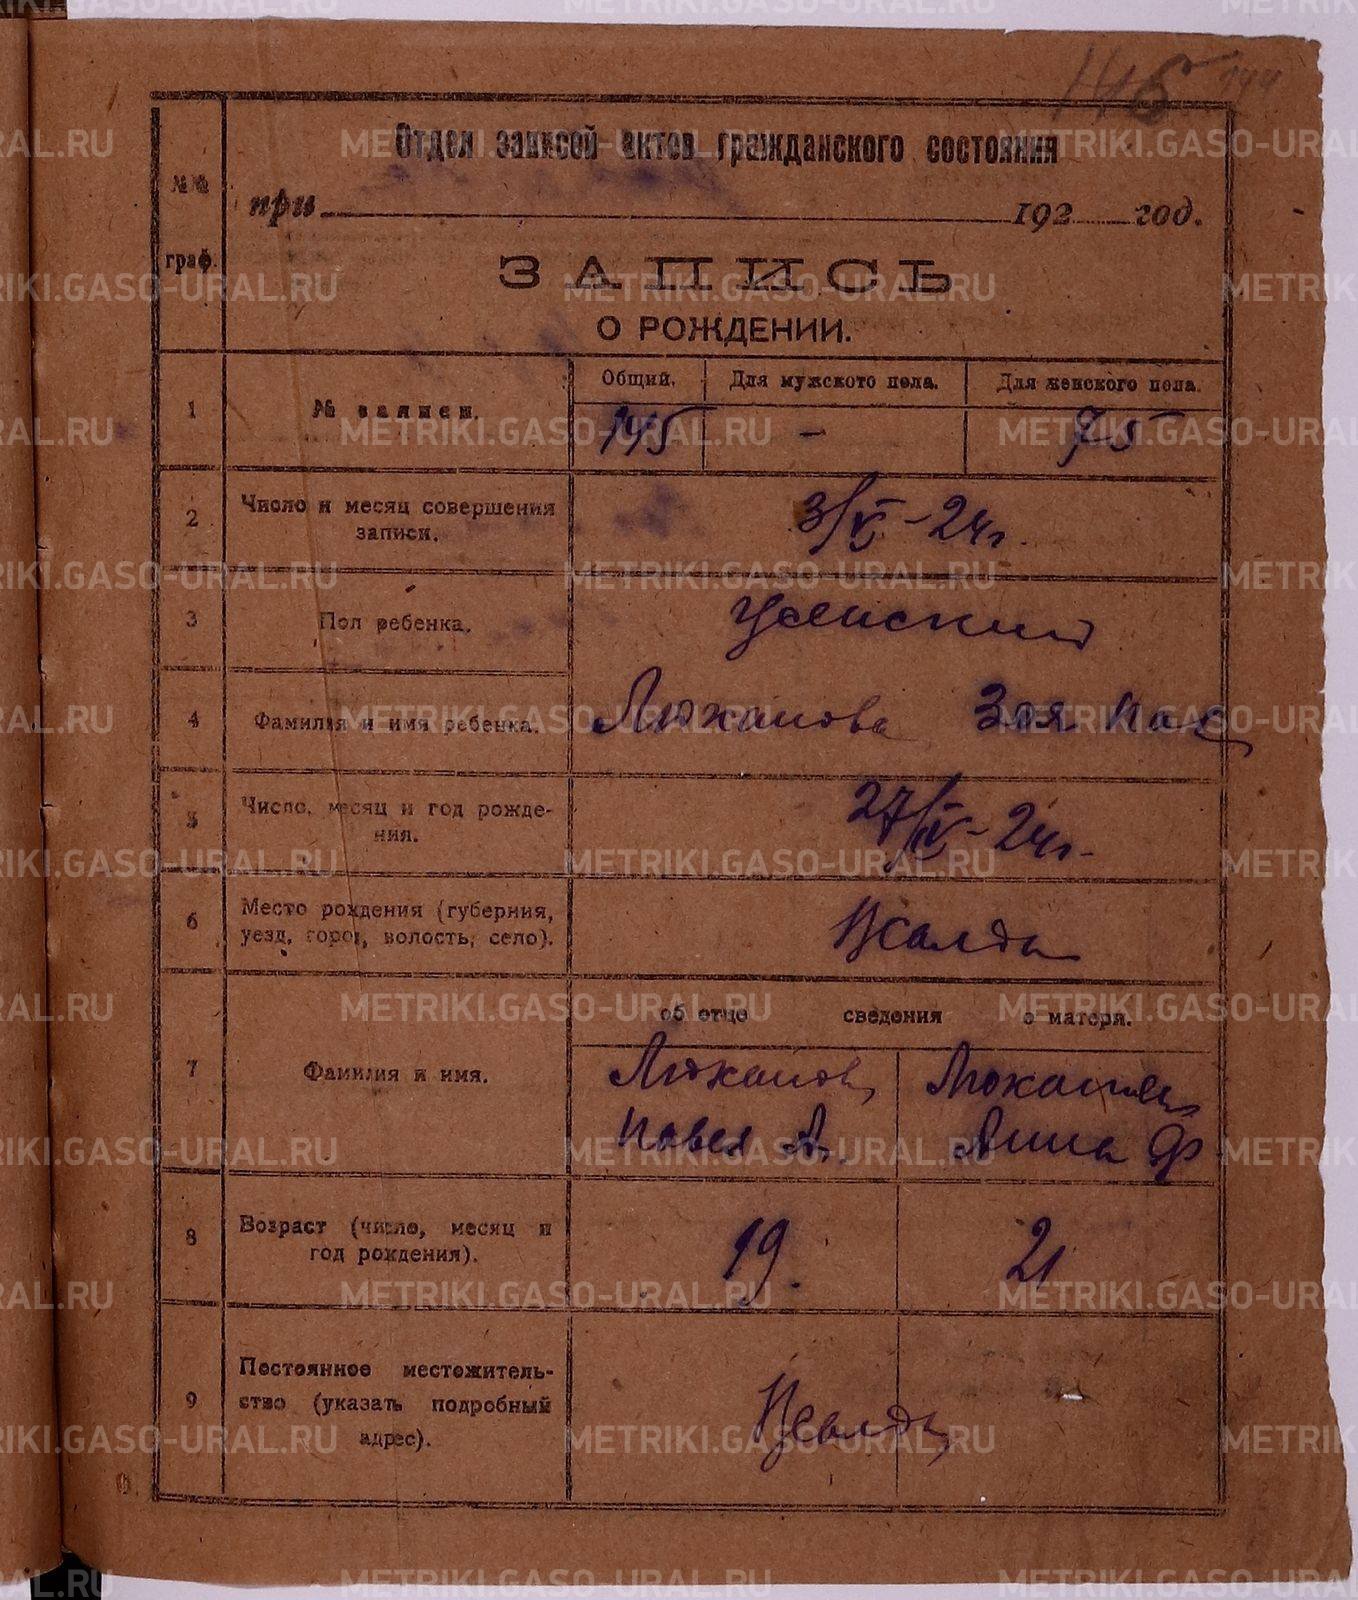 145
№№
граф.
Отдел записей актов гражданского состояния
при 192 год.
ЗАПИСЬ
О РОЖДЕНИИ.
1 № записи. Общий. Для мужского пола. Для женского пола.
145 - 75
2 Число и месяц совершения
записи.
3/V-24г.
3 Пол ребенка. Женский
4 Фамилия и имя ребенка. Люханова Зоя Пав
5 Число, месяц и год рожде-
ния.
27/IV-24г.
6 Место рождения (губерния,
уезд, город, волость, село).
Н Салда
об отце сведения о матери.
7 Фамилия и имя.
Люханов Люханова
Павел А. Анна Ф
8 Возраст (число, месяц и
год рождения).
19. 21
9 Постоянное местожитель-
ство (указать подробный
адрес).
Н Салда
METRIKI.GASO-URAL.RU